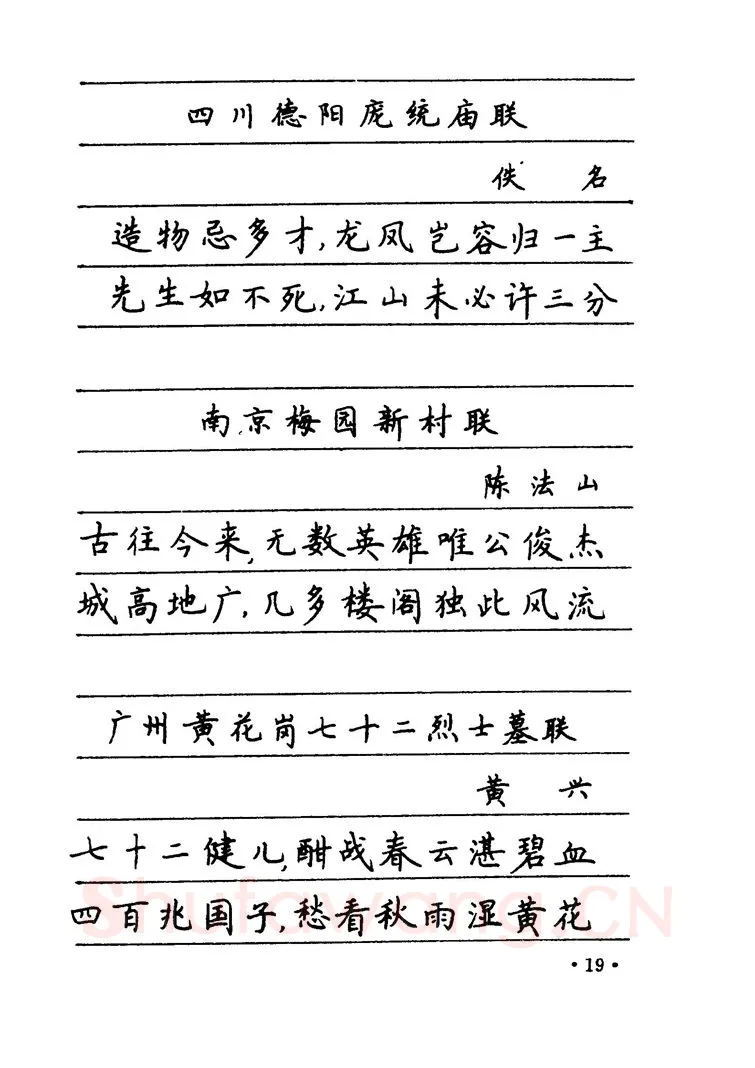 四川德阳庞统庙联
佚名
造物忌多才,龙凤岂容归一主
先生如不死,江山未必许三分
南京梅园新村联
陈法山
古往今来,无数英雄唯公俊杰
城高地广,几多楼阁独此风流
广州黄花岗七十二烈士墓联
黄兴
七十二健儿,酣战春云湛碧血
四百兆国子,愁看秋雨湿黄花
Shufawang.CN
·19·